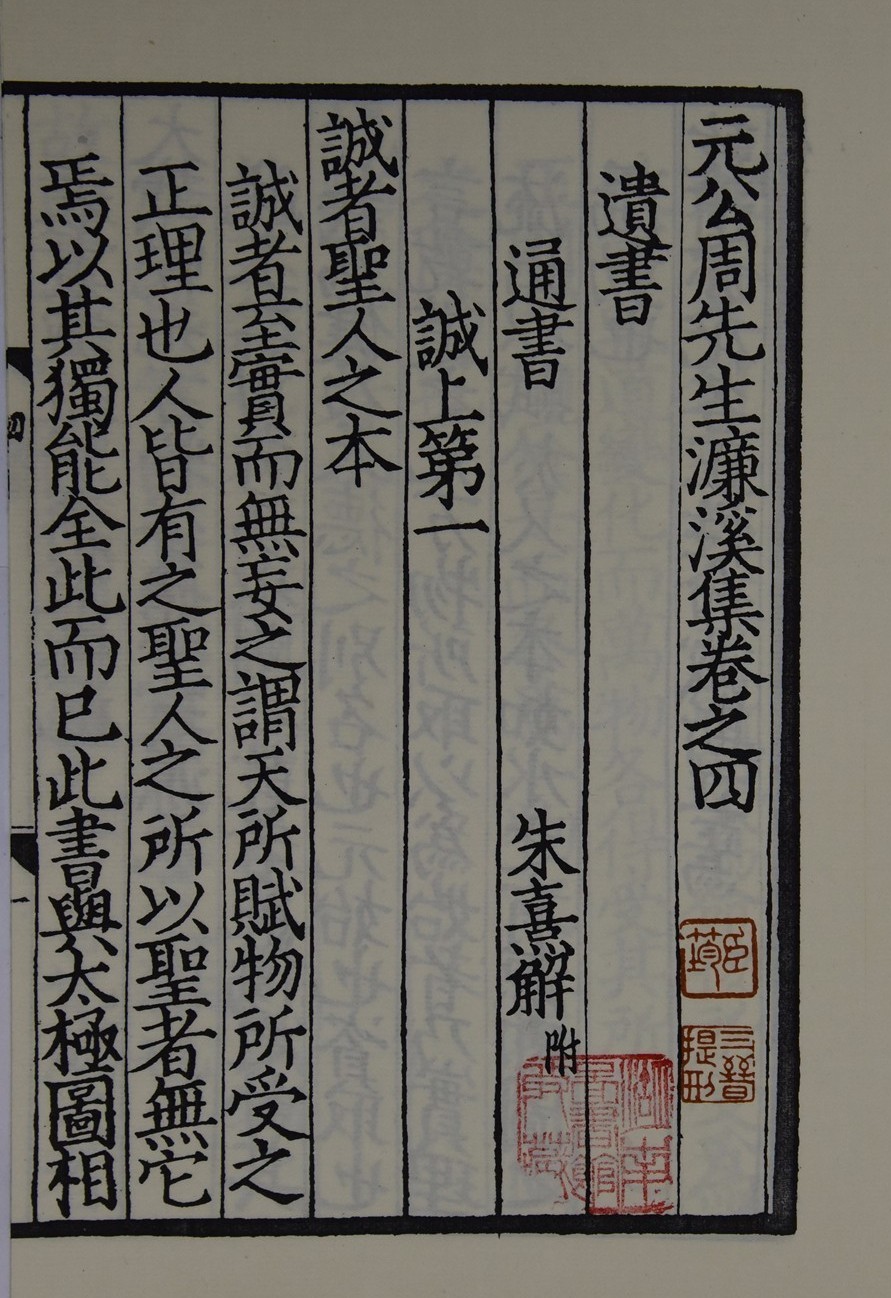 元公周先生濂溪集卷之四
遺書
通書 朱熹解附
誠上第一
誠者聖人之本
誠者至實而無妄之謂天所賦物所受之
正理也人皆有之聖人之所以聖者無它
焉以其獨能全此而已此書與太極圖相
四
一
三晉提刑